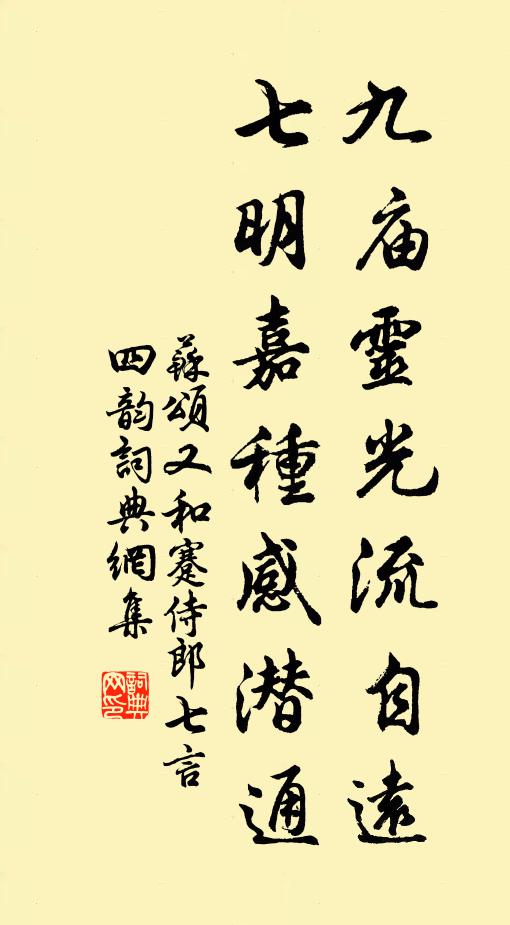 九庙靈光流自遠
七明嘉種感潜通
蘇頌又和蹇侍郎七言
四韵詞典網集
詞典网印